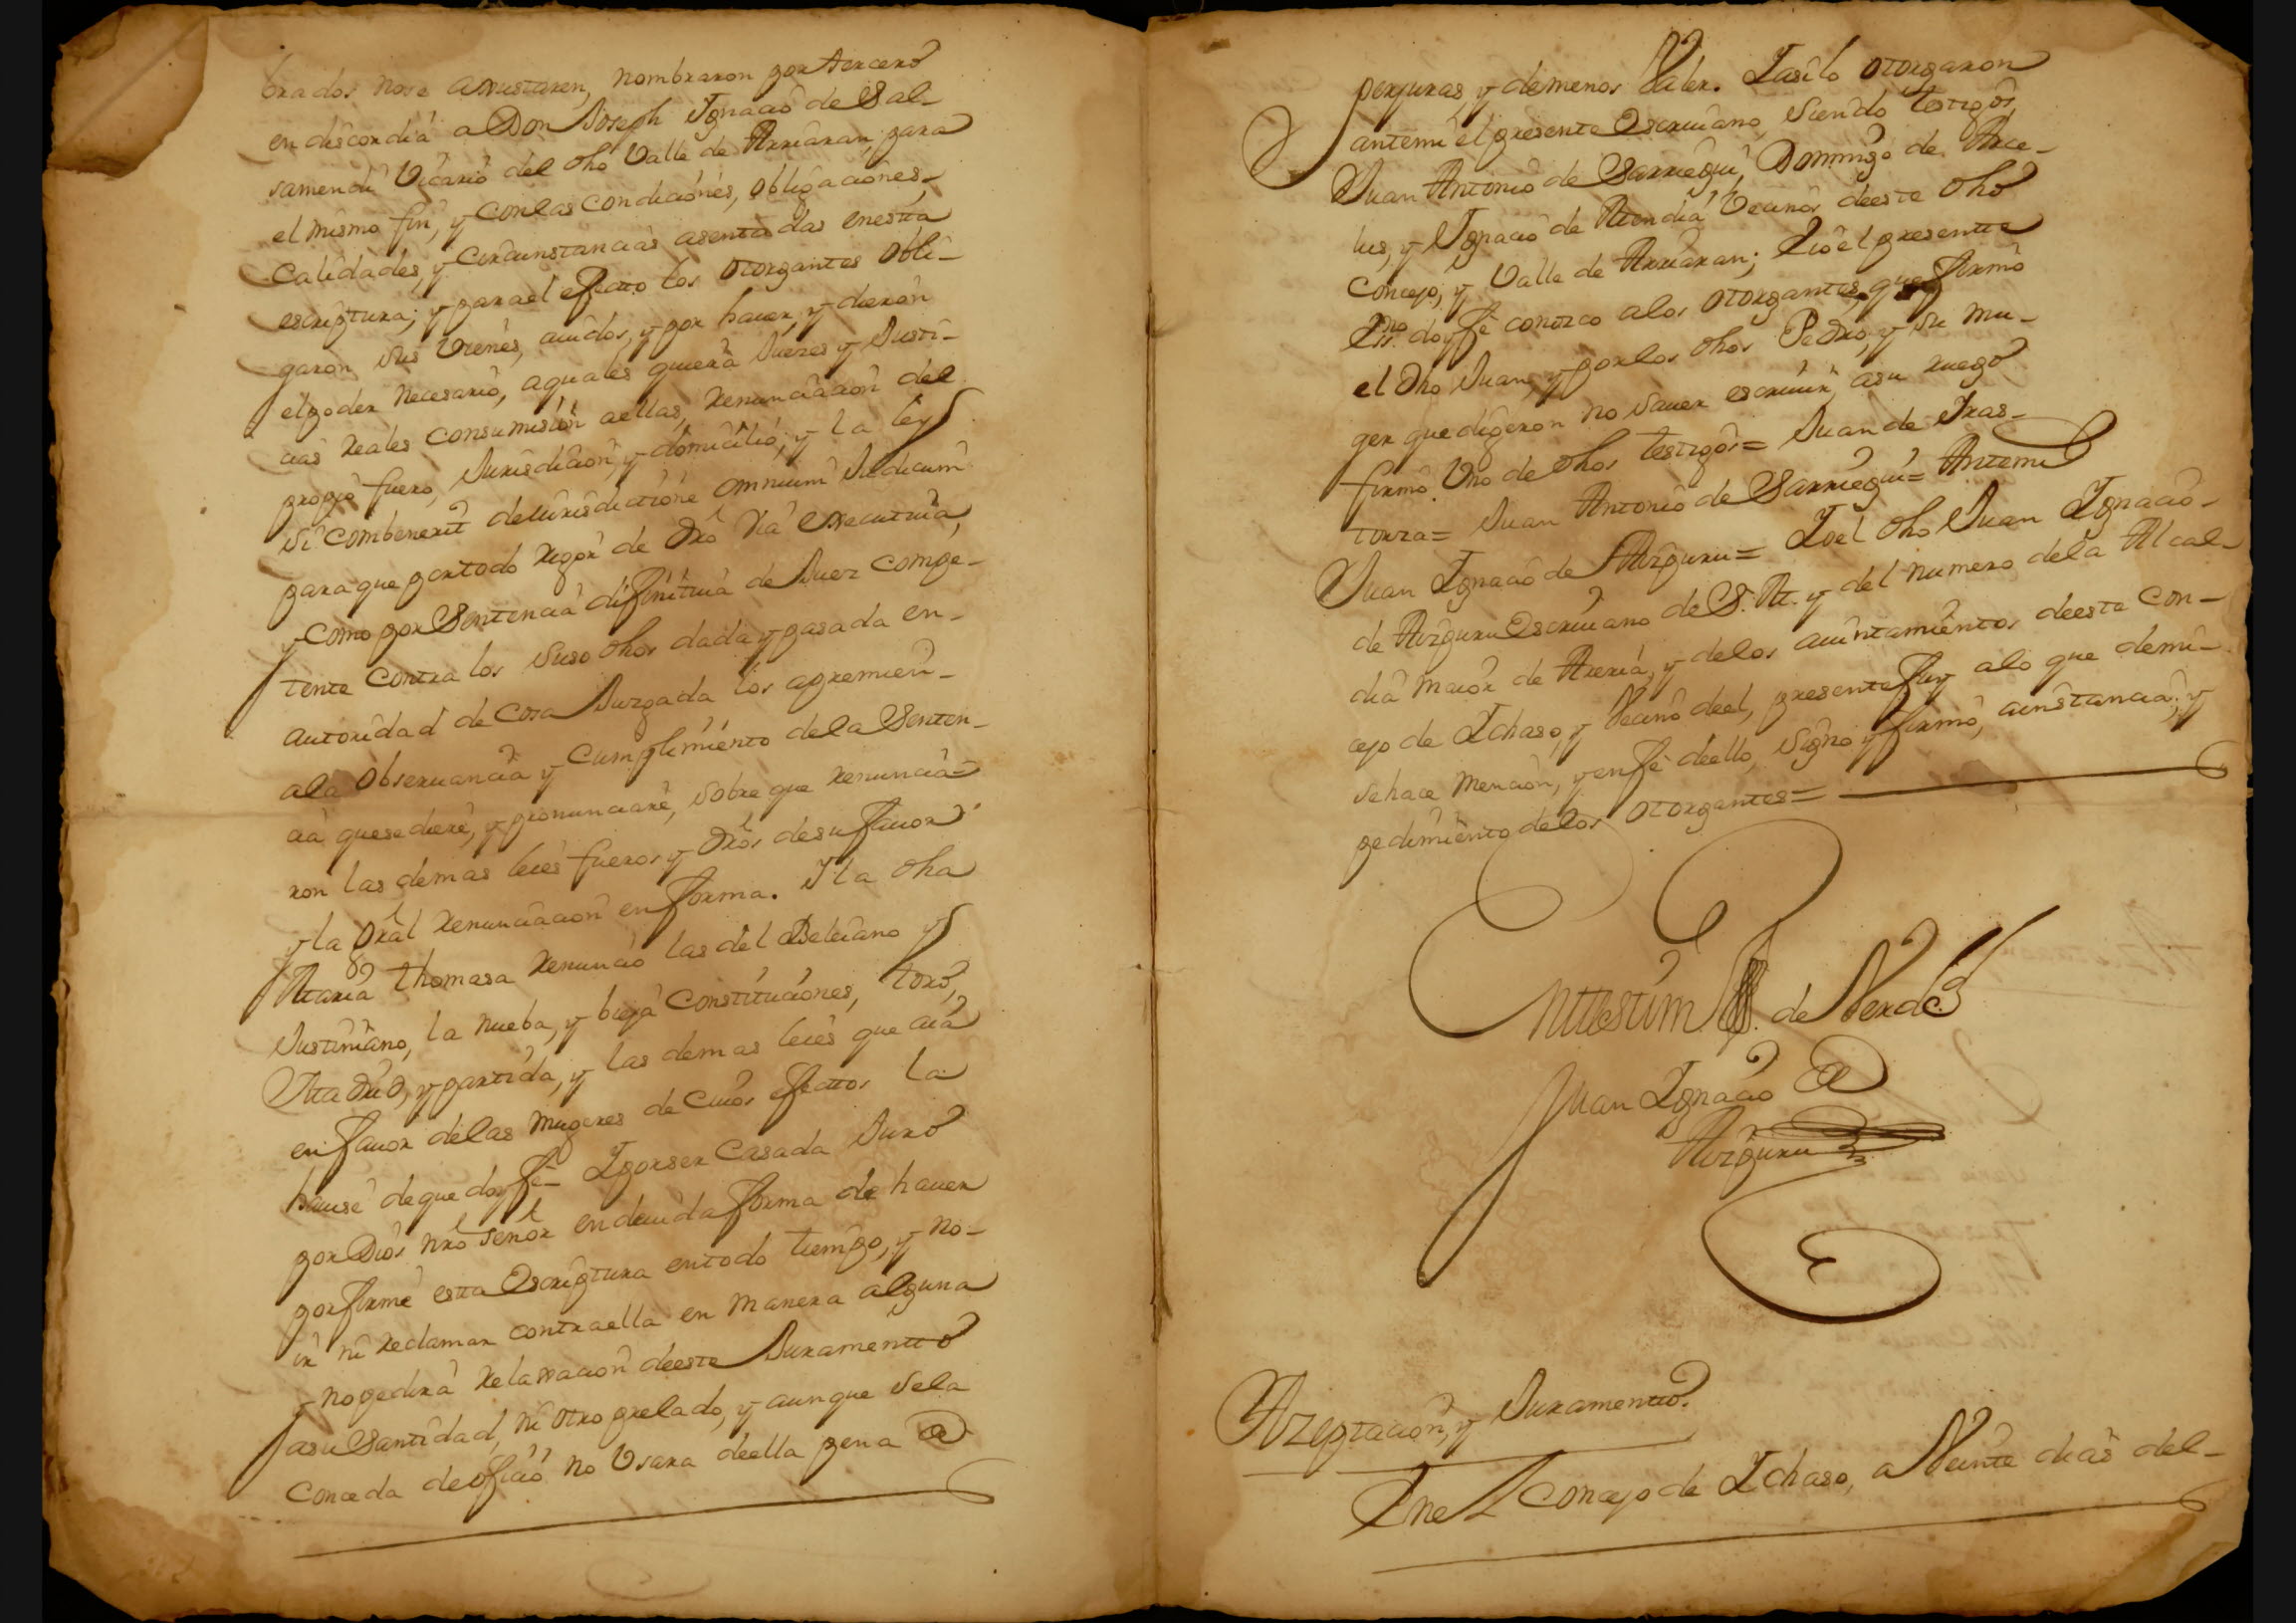 brados nose ajustaren, nombraron por tercero
en discordia a Don Joseph Ygnacio de Sal-
samendi Vicario del dho Valle de Arriaran, para
el mismo fin, y con las condiciones, obligaciones,
Calidades, y Circunstancias asentadas enesta
escriptura; y para el efecto los otorgantes obli-
garon sus Vienes, auidos, y por hauer, y dieron
el poder Necesario, aquales quiera Juezes y Justi-
cias Reales consumision aellas, Renunciacion del
propio fuero, Jurisdicion, y domicilio, y la ley
si Combenerit de Iurisdictione omnium Judicum
para que por todo Rigor de Dro Via executiva,
y como por Sentencia difinitiua de Juez compe-
tente Contra los Suso dhos dada y pasada en-
autoridad de Cosa Juzgada los apremien-
ala Obseruancia y Cumplimiento dela Senten-
cia quese diere, y pronunciare, sobre que Renuncia=
ron las demas leies fueros y Dros de su fauor
y la gral Renunciacion en forma. Y la dha
Maria Thomasa Renuncio las del Beleiano y
Justiniano, la nueba, y bieja Constituciones, toro,
Madrid, y partida, y las demas leies que aia
en fauor de las mugeres de Cuios efectos la
hauise de que doy fe= Y por ser Casada Juro
por Dios nro Señor en deuida forma de hauer
por firme esta Escriptura entodo tiempo, y no-
ir ni Reclamar contra ella en manera alguna
y no pedira Relaxacion deeste Juramento
asu Santidad, ni otro prelado, y aunque sela
Conceda de oficio no Vsara deella pena de
perjuras, y demenos Valer. Y asi lo otorgaron
antemi el presente Escriuano, siendo testigos,
Juan Antonio de Sarriegui, Domingo de Arce-
lus, y Ygnacio de Mendia Vecinos deeste dho
Concejo, y Valle de Arriaran; E io el presente
Essno. doy fe conozco alos otorgantes, que firmo
el Dho Juan, y por los dhos Pedro, y su mu-
ger que digeron no sauer escriuir, asu ruego
firmo Vno de dhos testigos= Juan de Iras-
torza= Juan Antonio de Sarriegui= Antemi
Juan Ygnacio de Aizpuru= Yo el dho Juan Ygnacio-
de Aizpuru Escriuano de S. M. y del numero dela Alcal-
dia maior de Areria, y delos aiuntamientos deeste Con-
cejo de Ychaso, y Vecino deel, presente fuy alo que demi-
se hace Mencion, y enfe deello, signo y firmo, ainstancia, y
pedimiento delos otorgantes=
En testim. de Verdad
Juan Ygnacio de
Aizpuru
Azeptacion, y Juramento.
En el Concejo de Ychaso, a Veinte dias del-